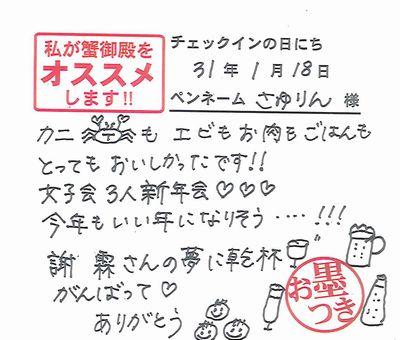 私が蟹御殿を
オススメ
します!!
チェックインの日にち
31年1月18日
ペンネーム さゆりん 様
カニ も エビもお肉もごはんも
とっても おいしかったです!!
女子会3人新年会♡♡♡
今年もいい年になりそう‥‥!!!
謝 霖さんの夢に乾杯
がんばって♡
ありがとう
お墨つき